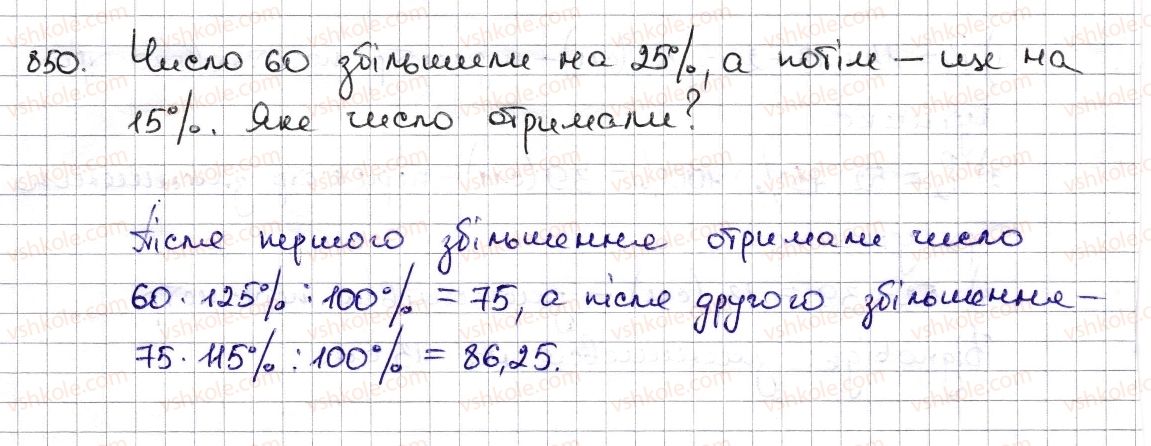 850. Число 60 збільшили на 25%, а потім – ще на
15%. Яке число отримали?
Після першого збільшення отримали число
60 · 125% : 100% = 75, а після другого збільшення –
75 · 115% : 100% = 86,25.